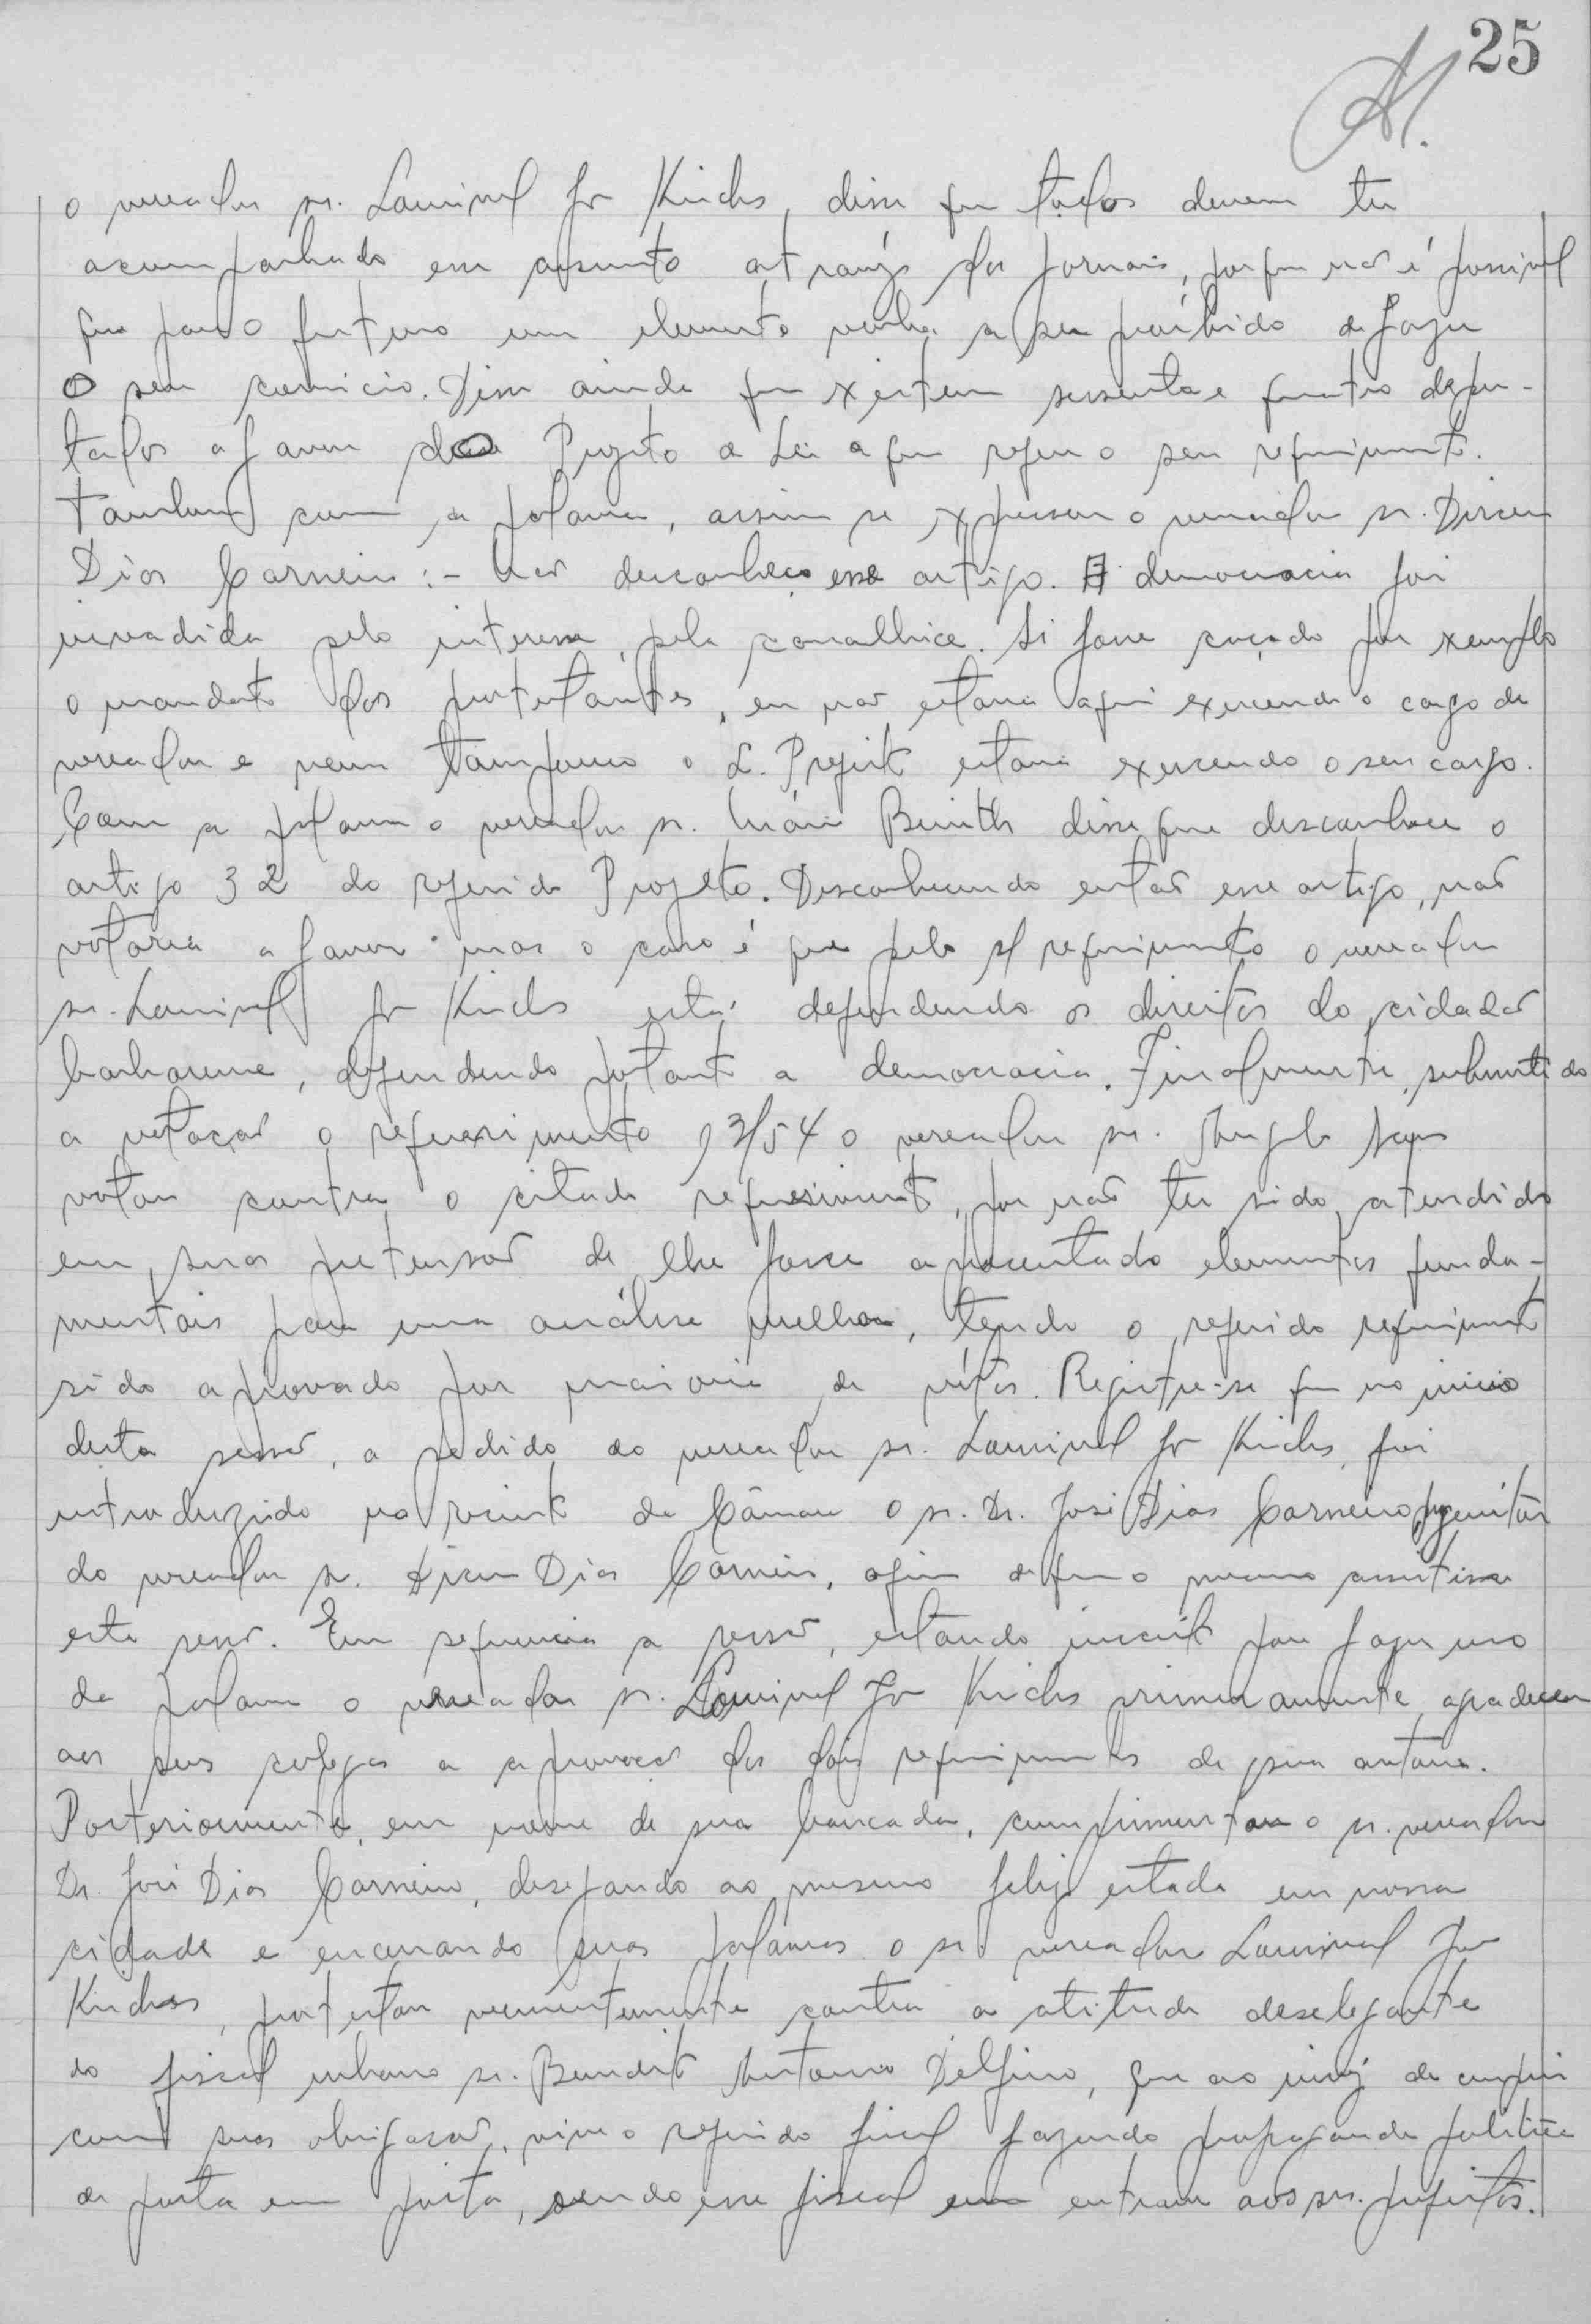 25
o vereador sr. Lourival Jr Kirchs, disse que todos devem ter
acompanhado esse assunto atravéz dos jornais, porque não é possivel
que para o futuro um elemento venha a ser proíbido de fazer
o seu comicio. Disse ainda que existem sessenta e quatro depu-
tados a favor desse Projeto de Lei a que refere o seu requerimento.
Tambem com a palavra, assim se expressou o vereador sr. Dirceu
Dias Carneiro:- Não desconheço esse artigo. A democracia foi
invadida pelo interesse, pela canalhice. Si fosse caçado por exemplo
o mandato dos protestantes, eu não estaria aqui exercendo o cargo de
vereador e nem tampouco o S. Prefeito estaria exercendo o seu cargo.
Com a palavra o vereador sr. Mário disse que desconhece o
artigo 32 do referido Projeto. Desconhecendo então esse artigo, não
votaria a favor mas o caso é que pelo s/ requerimento o vereador
sr. Lourival Jr Kirchs está defendendo os direitos do cidadão
barbarense, defendendo portanto a democracia. Finalmente, submetido
a votação o requerimento 93/54 o vereador sr. Angelo
votou contra o citado requerimento, por não ter sido atendido
em suas pretensão de lhe fosse apresentado elementos funda-
mentais para uma análise melhor, tendo o referido requerimento
sido aprovado por maioria de vótos. Registre-se que no inicio
desta sessão, a pedido do vereador sr. Lourival Jr Kirchs, foi
introduzido no recinto da Câmara o sr. Dr. José Dias Carneiro, progenitor
do vereador sr. Dirceu Dias Carneiro, afim de que o mesmo assistisse
esta sessão. Em sequencia a sessão, estando inscrito para fazer uso
da palavra o vereador sr. Lourival Jr Kirchs primeiramente, agradeceu
aos seus colegas a aprovação dos dois requerimentos de sua autoria.
Posteriormente, em nome de sua bancada, cumprimentou o sr. vereador
Dr. José Dias Carneiro, desejando ao mesmo feliz estada em nossa
cidade e encerrando suas palavras o sr vereador Lourival Jr
Kirchs, protestou veementemente contra a atitude deselegante
do fiscal urbano sr. Benedito Antonio Delfino, que ao invéz de cumprir
com suas obrigação, vive o referido fiscal fazendo propaganda politica
de porta em porta, sendo esse fiscal um entrave aos srs. prefeitos.